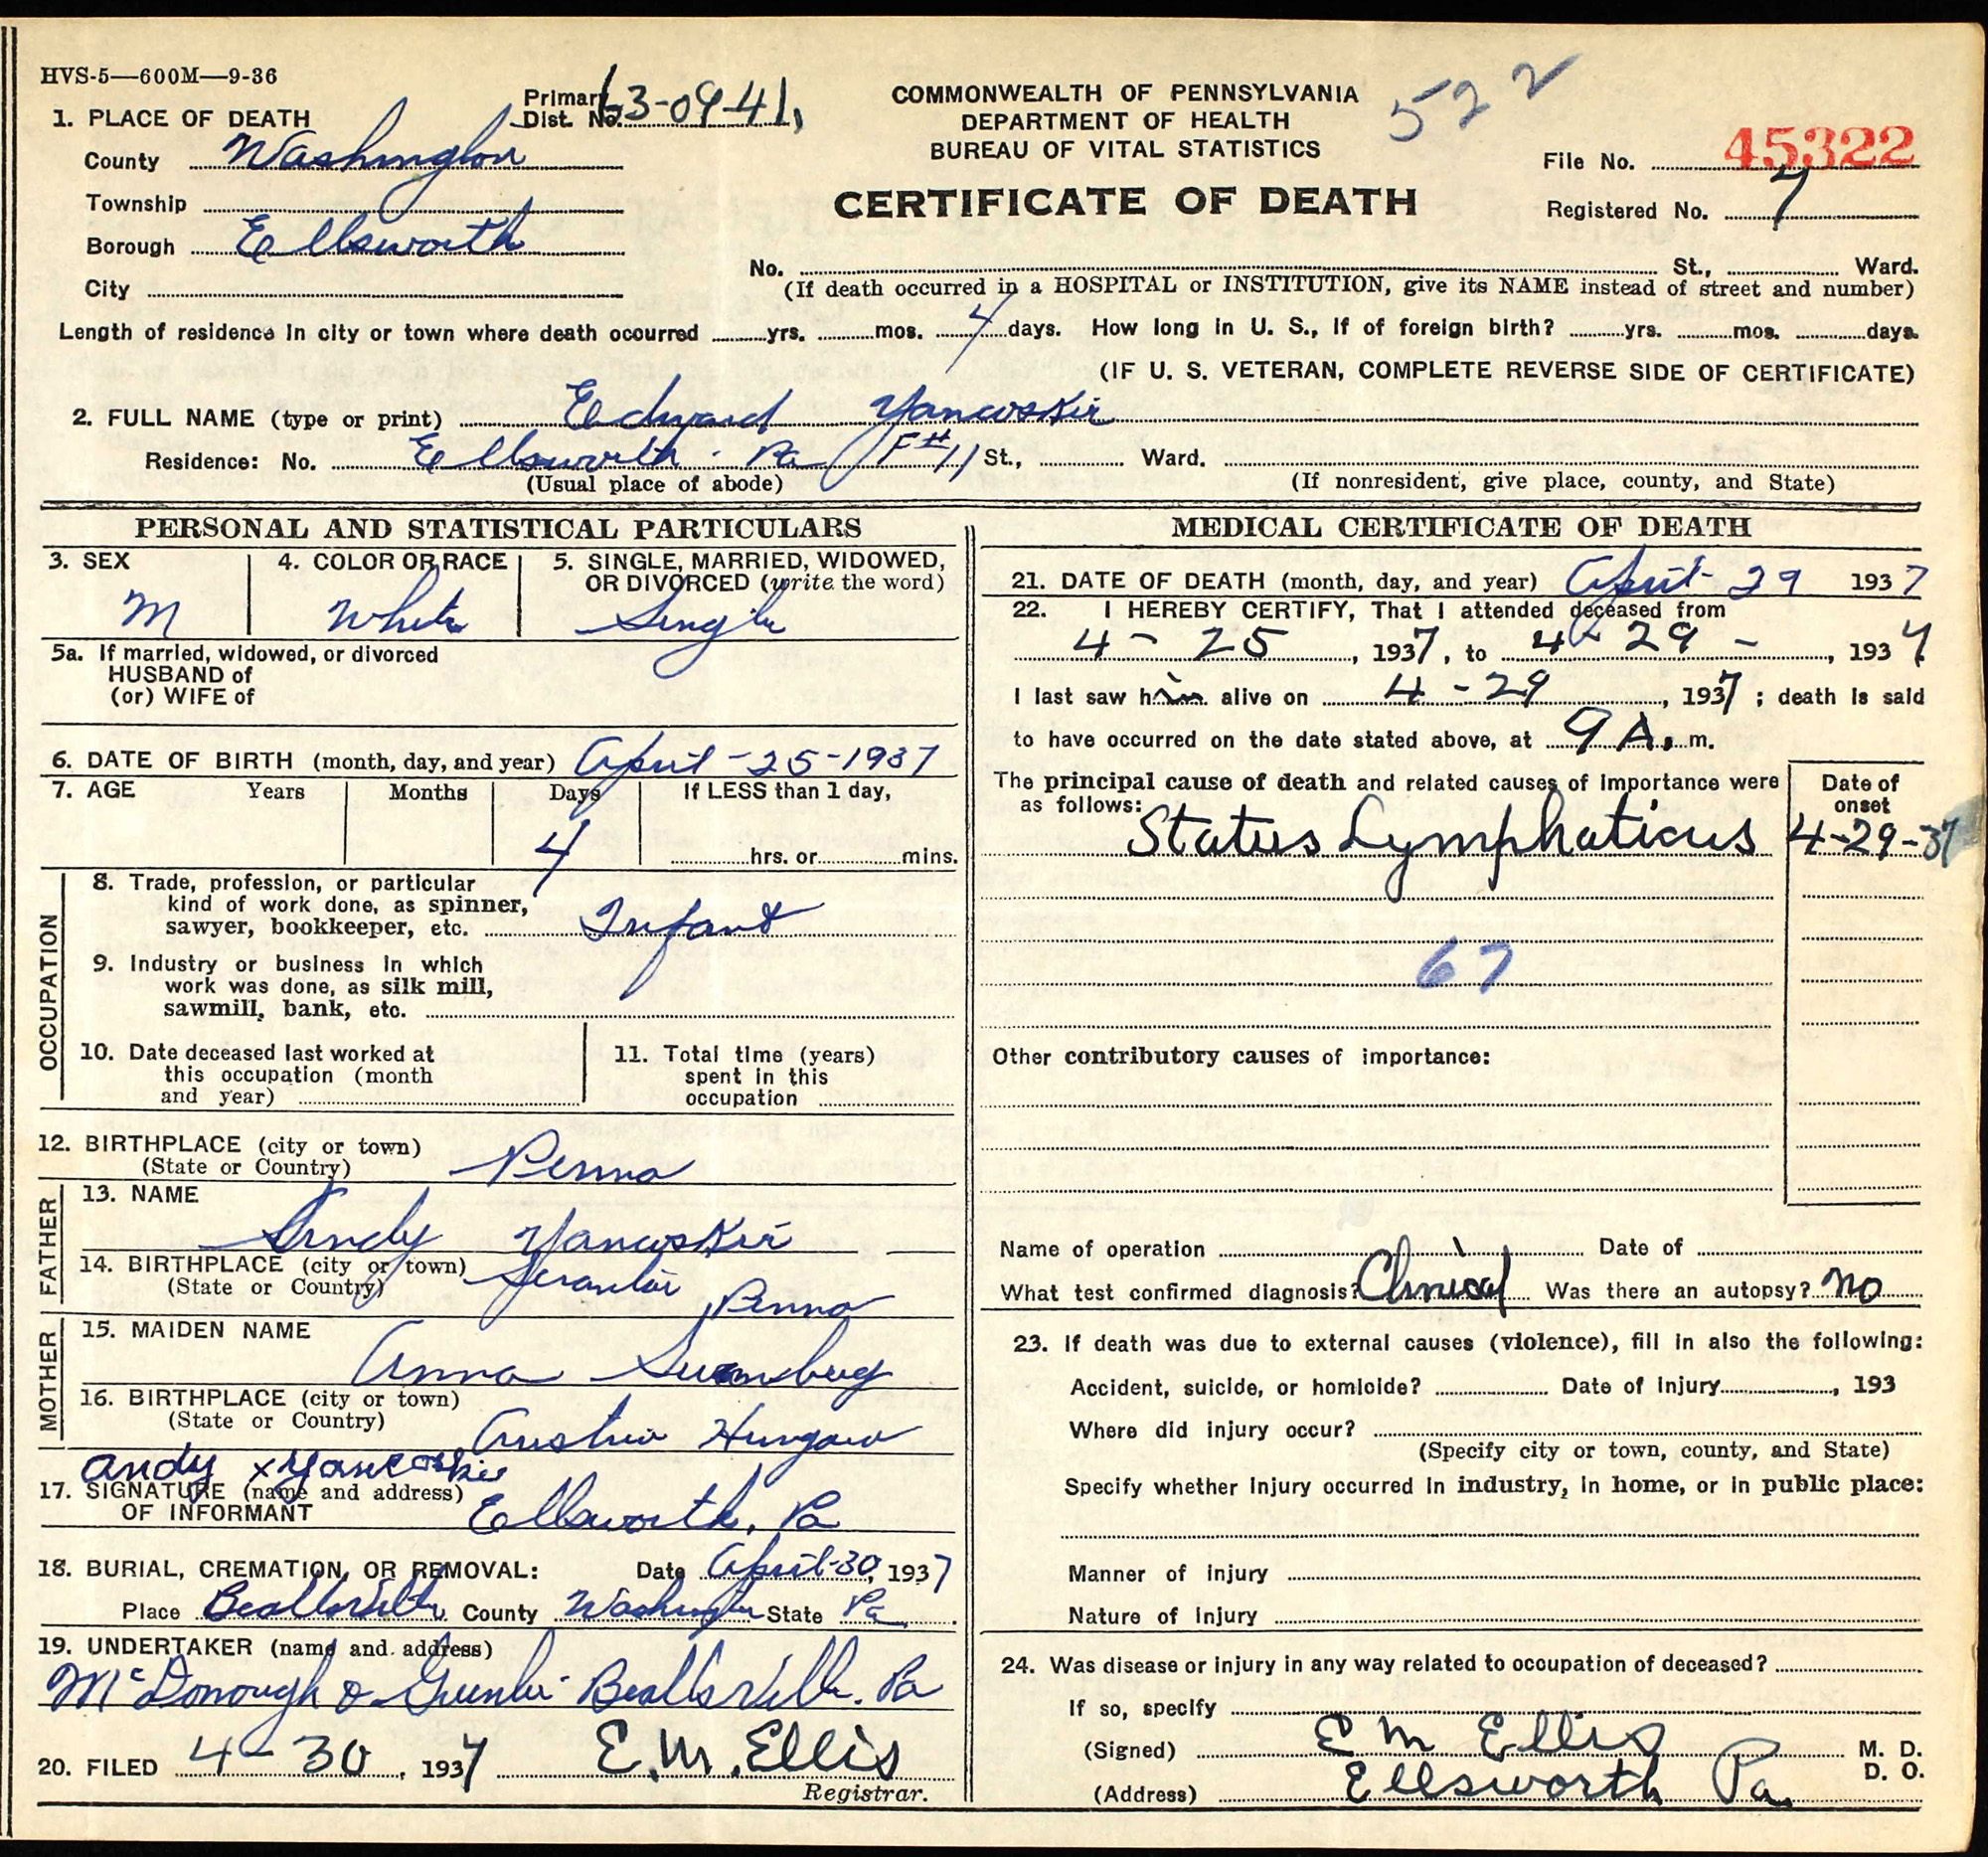 HVS-5—600M—9-36
Primary Dist. No. 63-09-41,
COMMONWEALTH OF PENNSYLVANIA
DEPARTMENT OF HEALTH
BUREAU OF VITAL STATISTICS
522
CERTIFICATE OF DEATH
File No. 45322
Registered No. 7
1. PLACE OF DEATH
County Washington
Township
Borough Ellsworth
City
No. St., Ward.
(If death occurred in a HOSPITAL or INSTITUTION, give its NAME instead of street and number)
Length of residence in city or town where death occurred yrs. mos. 4 days. How long in U. S., if of foreign birth? yrs. mos. days.
(IF U. S. VETERAN, COMPLETE REVERSE SIDE OF CERTIFICATE)
2. FULL NAME (type or print) Edward Yancoskie
Residence: No. Ellsworth - Pa F#11 St., Ward.
(Usual place of abode) (If nonresident, give place, county, and State)
PERSONAL AND STATISTICAL PARTICULARS
3. SEX 4. COLOR OR RACE 5. SINGLE, MARRIED, WIDOWED,
OR DIVORCED (write the word)
M White Single
5a. If married, widowed, or divorced
HUSBAND of
(or) WIFE of
6. DATE OF BIRTH (month, day, and year) April-25-1937
7. AGE Years Months Days If LESS than 1 day,
4 hrs. or mins.
OCCUPATION
8. Trade, profession, or particular
kind of work done, as spinner,
sawyer, bookkeeper, etc. Infant
9. Industry or business in which
work was done, as silk mill,
sawmill, bank, etc.
10. Date deceased last worked at
this occupation (month
and year)
11. Total time (years)
spent in this
occupation
12. BIRTHPLACE (city or town)
(State or Country) Penna
FATHER
13. NAME
Andy Yancoskie
14. BIRTHPLACE (city or town) Scranton
(State or Country) Penna
MOTHER
15. MAIDEN NAME
Anna
16. BIRTHPLACE (city or town)
(State or Country) Austria Hungary
Andy x Yancoskie
17. SIGNATURE (name and address)
OF INFORMANT Ellsworth, Pa
18. BURIAL, CREMATION, OR REMOVAL: Date April-30, 1937
Place Beallsville County Washington State Pa
19. UNDERTAKER (name and address)
McDonough & Beallsville. Pa
20. FILED 4-30, 1937 E.M. Ellis
Registrar.
MEDICAL CERTIFICATE OF DEATH
21. DATE OF DEATH (month, day, and year) April-29 1937
22. I HEREBY CERTIFY, That I attended deceased from
4-25, 1937, to 4-29-, 1937
I last saw him alive on 4-29, 1937; death is said
to have occurred on the date stated above, at 9 A. m.
The principal cause of death and related causes of importance were
as follows:
Date of
onset
Status Lymphaticus 4-29-37
67
Other contributory causes of importance:
Name of operation Date of
What test confirmed diagnosis? Clinical Was there an autopsy? no
23. If death was due to external causes (violence), fill in also the following:
Accident, suicide, or homicide? Date of injury, 193
Where did injury occur?
(Specify city or town, county, and State)
Specify whether injury occurred in industry, in home, or in public place:
Manner of injury
Nature of injury
24. Was disease or injury in any way related to occupation of deceased?
If so, specify
(Signed) E M Ellis M. D.
D. O.
(Address) Ellsworth Pa.